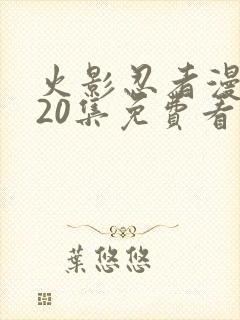 火影忍者漫
20集免費看
葉悠悠